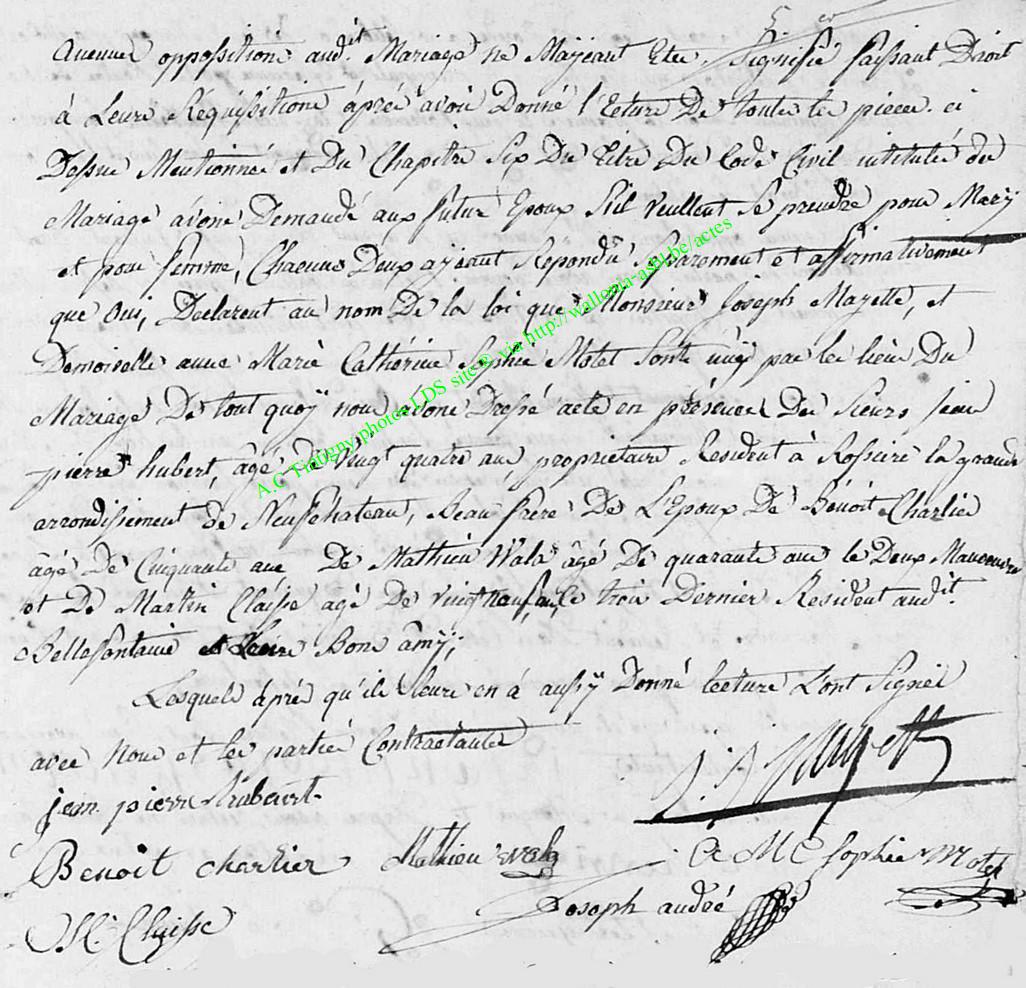 Aucune opposition audit Mariage ne Mayeant Etee Signifié faissant Droit
à Leure Requisitione áprée avoir Donné l'Ecture De toute les piece ci
Dessue Mentionnée et Du Chapitre Six Du titre Du Code Civil intitulé du
Mariage avone Demandé aux futur Epoux S'il veullent Se prendre pour Mary
et pour femme, Chacune Deux ayeant Repondu Separement et affirmativement
que Oui, Declarent au nom De la loi que Monsieur Joseph Mayette, et
Demoiselle anne Marie Cathérine Sophie Motet Sont uny par les lien Du
Mariage De tout quoÿ nous avone Dressé acte en présence De Sieurs jean
pierre hubert, âgé De Vingt quatre ans proprietaire Resident à Rossiere la grande
arrondissement de Neufchateau, Beau frere De L'Epoux De Bénoit Charlié
âgé De Cinquante ans De Mathieu Wala âgé De quarante ans le Deux Maneuvre
et De Martin Claisse agé De vingt neuf ans le trois Dernier Resident audit
Bellefontaine et Leure Bone âmÿ;
Lesquels áprée qu'ils leure en à aussÿ Donné lecture L'ont Signée
avec Nous et les partie Contractante
jean pierre hubert
Benoit charlier Mathieu A M C Sophie Motet
M. Claisse Joseph andré
A.C Tintigny photos LDS site© via http://wallonia-asbl.be/actes